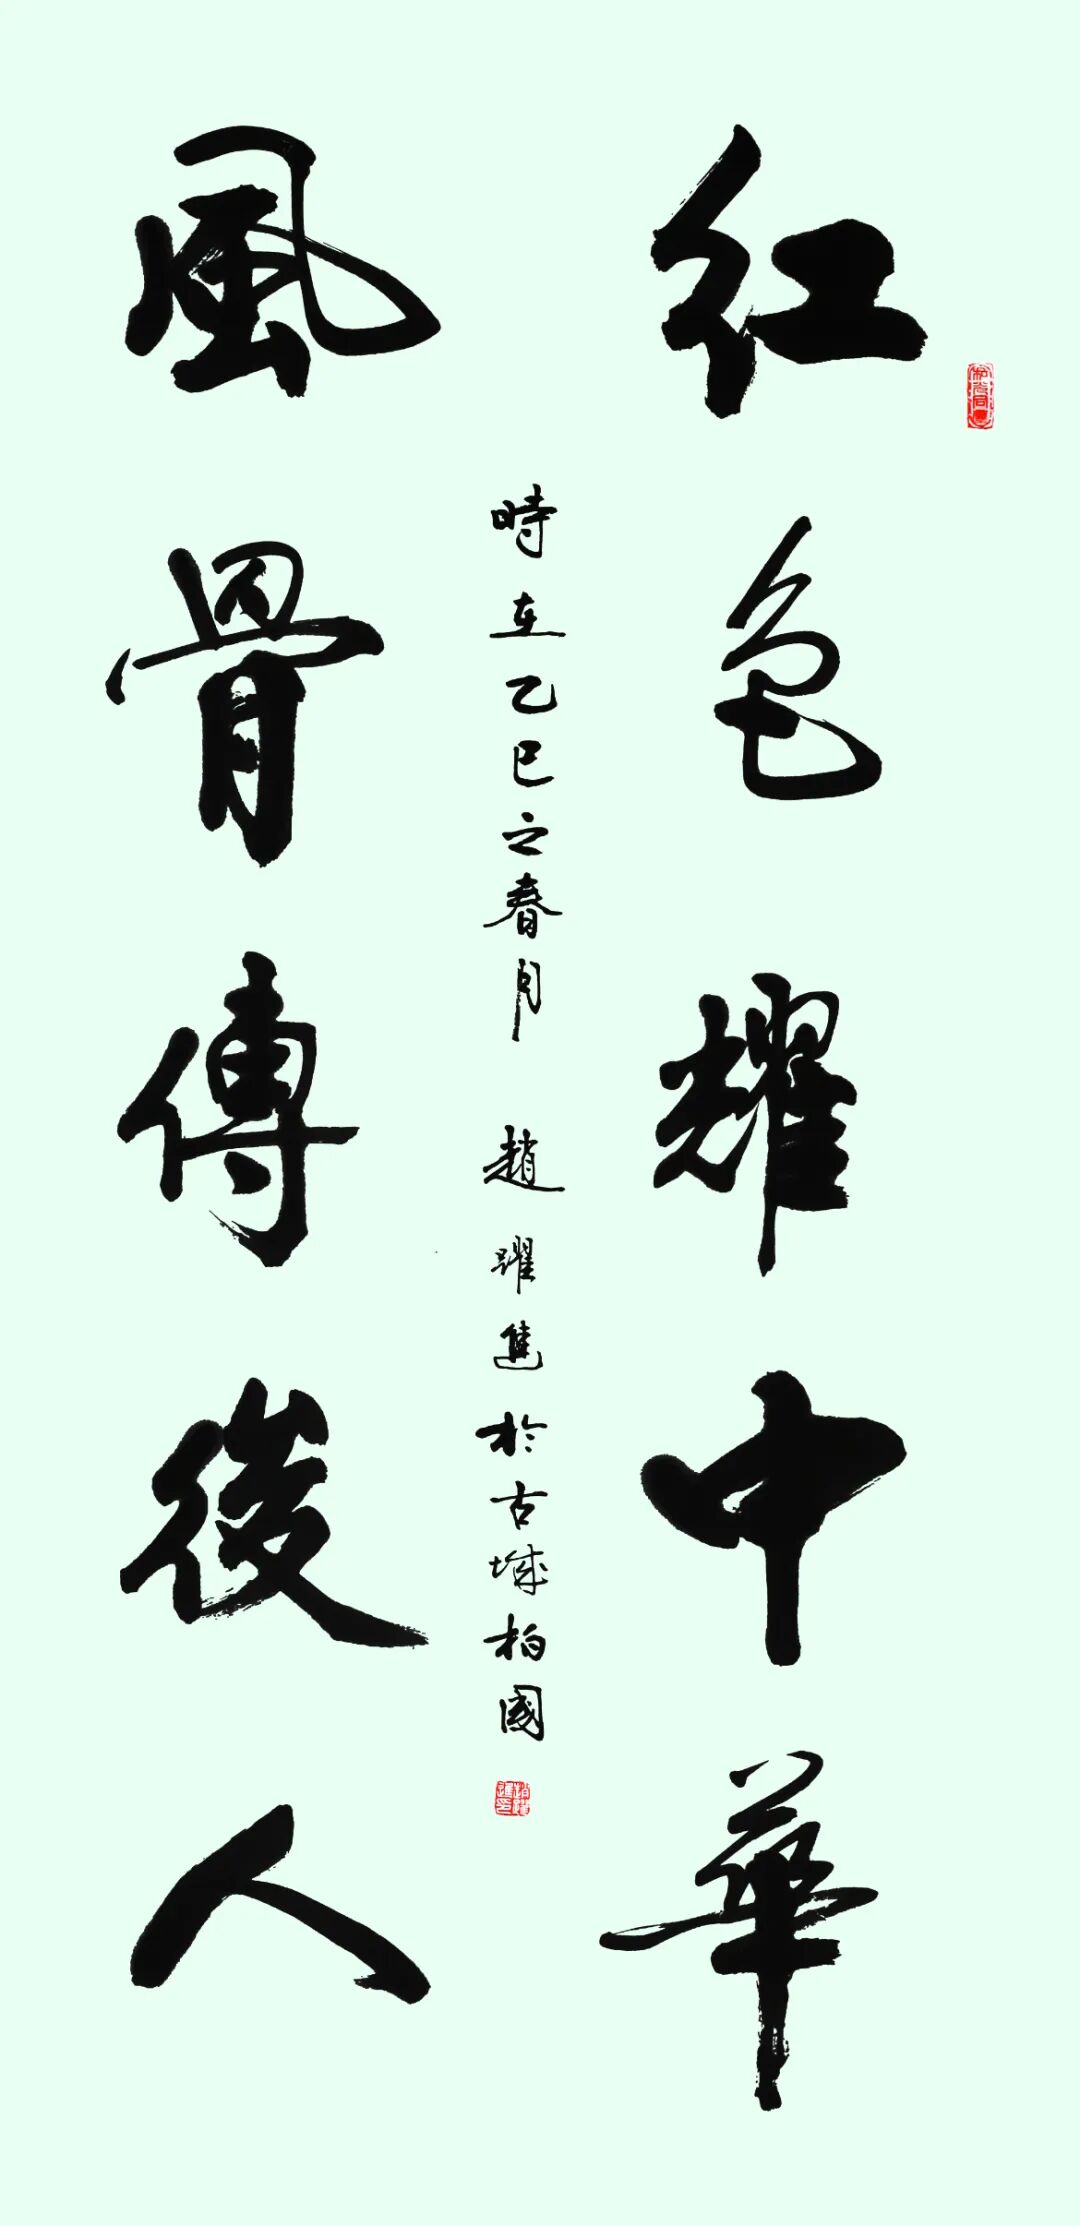 红色耀中華
風骨傳後人
時在乙巳之春月 趙躍進於古城柏國